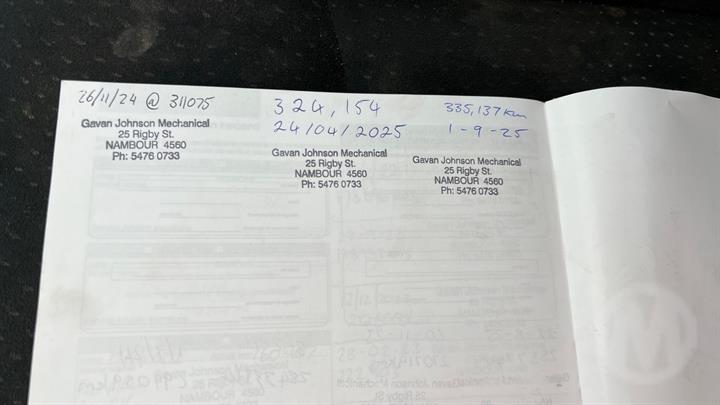 26/11/24 @ 311075
Gavan Johnson Mechanical
25 Rigby St.
NAMBOUR 4560
Ph: 5476 0733
324,154
24/04/2025
Gavan Johnson Mechanical
25 Rigby St.
NAMBOUR 4560
Ph: 5476 0733
335,137 km
1-9-25
Gavan Johnson Mechanical
25 Rigby St.
NAMBOUR 4560
Ph: 5476 0733